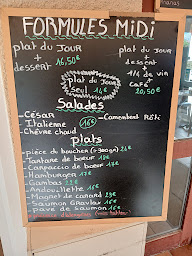 FORMULES MiDi
plat du JOUR
+
dessert 16,50€
plat du JOUR
+
dessert
+
1/4 de vin
+
café
20,50€
plat du JOUR
seul 14€
Salades
- CESAR
Italienne
- Chèvre chaud
16€
- Camembert Rôti
plats
- pièce du boucher (≈300gr)
- Tartare de boeuf 18€
- Carpaccio de boeuf 18€
- Hamburger 17€
- Gambas 23€
- Andouillette 16€
- Magret de canard 23€
- Saumon Gravlax 15€
- pavé de saumon 16€